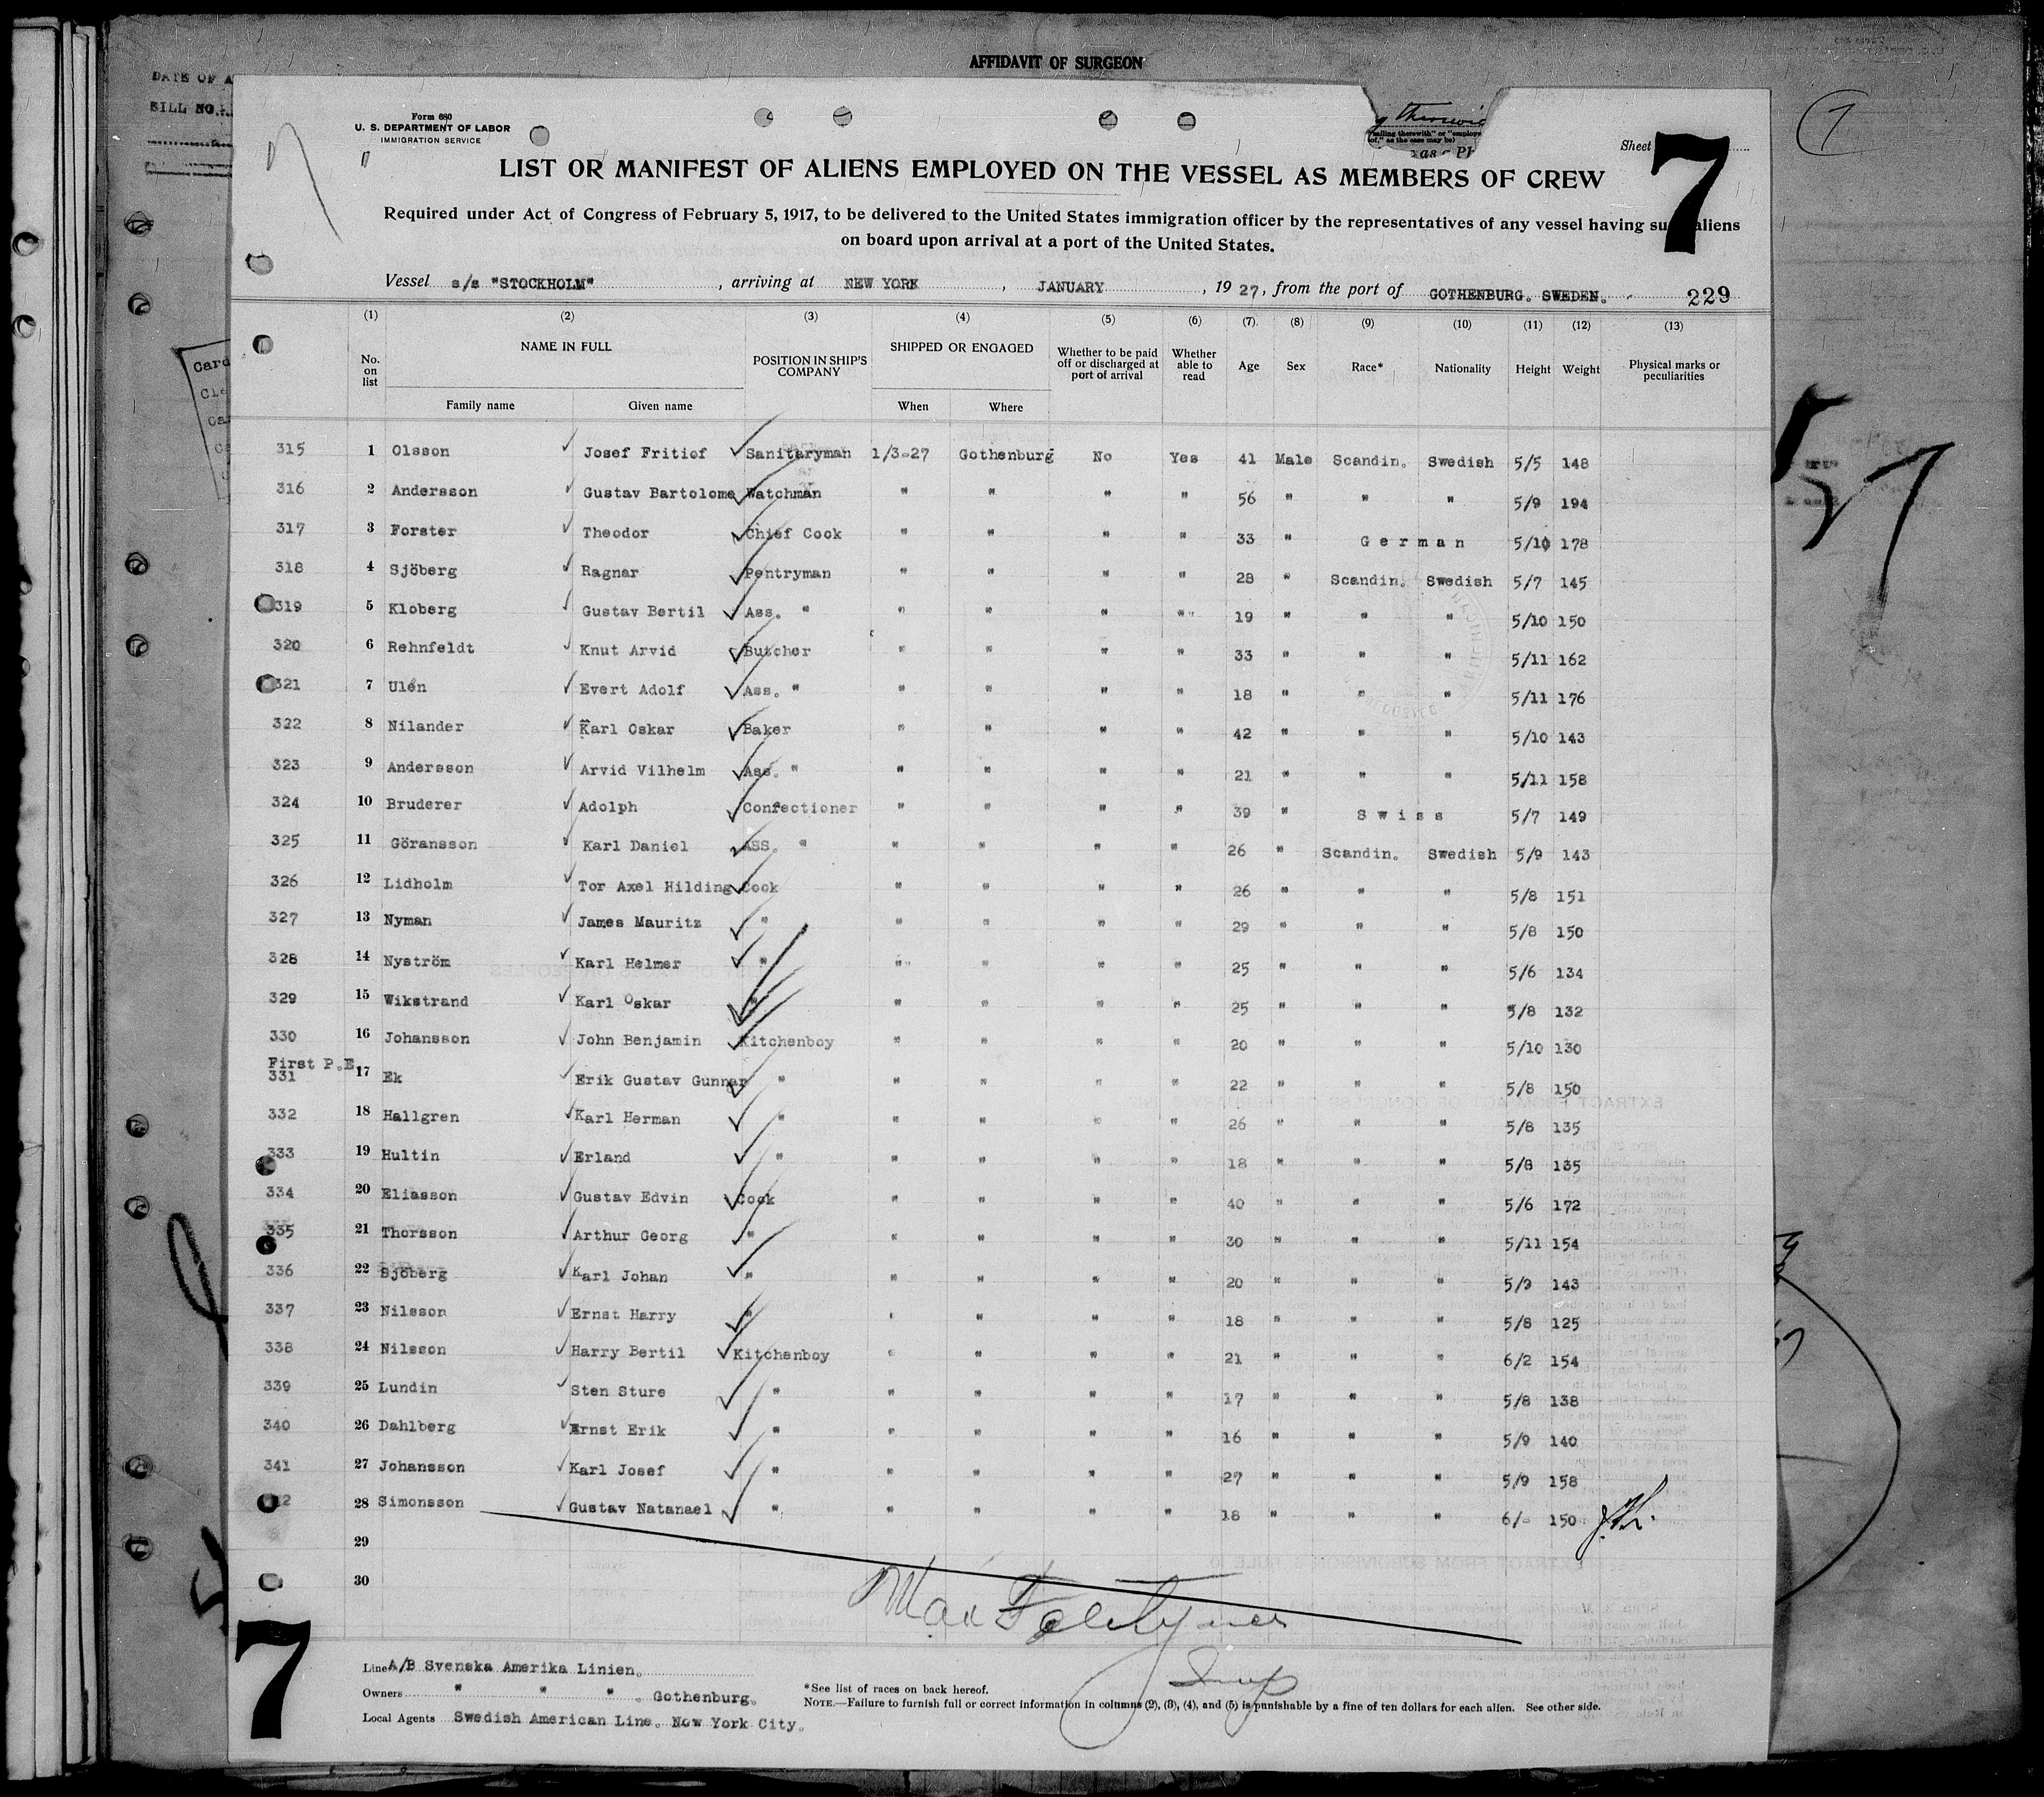 AFFIDAVIT OF SURGEON
DATE OF A
BILL NO.
Form 680
U. S. DEPARTMENT OF LABOR
IMMIGRATION SERVICE
Sheet 7
7
LIST OR MANIFEST OF ALIENS EMPLOYED ON THE VESSEL AS MEMBERS OF CREW
Required under Act of Congress of February 5, 1917, to be delivered to the United States immigration officer by the representatives of any vessel having su aliens
on board upon arrival at a port of the United States.
Vessel s/s "STOCKHOLM", arriving at NEW YORK, JANUARY, 1927, from the port of GOTHENBURG. SWEDEN. 229
(1) (2) (3) (4) (5) (6) (7) (8) (9) (10) (11) (12) (13)
No. on list NAME IN FULL Family name Given name POSITION IN SHIP'S COMPANY SHIPPED OR ENGAGED When Where Whether to be paid off or discharged at port of arrival Whether able to read Age Sex Race* Nationality Height Weight Physical marks or peculiarities
315 1 Olsson Josef Fritiof Sanitaryman 1/3-27 Gothenburg No Yes 41 Male Scandin. Swedish 5/5 148
316 2 Andersson Gustav Bartolome Watchman " " " " 56 " " " 5/9 194
317 3 Forster Theodor Chief Cook " " " " 33 " German 5/10 178
318 4 Sjöberg Ragnar Pentryman " " " " 28 " Scandin. Swedish 5/7 145
319 5 Kloberg Gustav Bertil Ass. " " " " " 19 " " " 5/10 150
320 6 Rehnfeldt Knut Arvid Butcher " " " " 33 " " " 5/11 162
321 7 Ulén Evert Adolf Ass. " " " " " 18 " " " 5/11 176
322 8 Nilander Karl Oskar Baker " " " " 42 " " " 5/10 143
323 9 Andersson Arvid Vilhelm Ass. " " " " " 21 " " " 5/11 158
324 10 Bruderer Adolph Confectioner " " " " 39 " Swiss 5/7 149
325 11 Göransson Karl Daniel ASS. " " " " " 26 " Scandin. Swedish 5/9 143
326 12 Lidholm Tor Axel Hilding Cook " " " " 26 " " " 5/8 151
327 13 Nyman James Mauritz " " " " " 29 " " " 5/8 150
328 14 Nyström Karl Helmer " " " " " 25 " " " 5/6 134
329 15 Wikstrand Karl Oskar " " " " " 25 " " " 5/8 132
330 16 Johansson John Benjamin Kitchenboy " " " " 20 " " " 5/10 130
First P.E.
331 17 Ek Erik Gustav Gunnar " " " " " 22 " " " 5/8 150
332 18 Hallgren Karl Herman " " " " " 26 " " " 5/8 135
333 19 Hultin Erland " " " " " 18 " " " 5/8 135
334 20 Eliasson Gustav Edvin Cook " " " " 40 " " " 5/6 172
335 21 Thorsson Arthur Georg " " " " " 30 " " " 5/11 154
336 22 Sjöberg Karl Johan " " " " " 20 " " " 5/9 143
337 23 Nilsson Ernst Harry " " " " " 18 " " " 5/8 125
338 24 Nilsson Harry Bertil Kitchenboy " " " " 21 " " " 6/2 154
339 25 Lundin Sten Sture " " " " " 17 " " " 5/8 138
340 26 Dahlberg Ernst Erik " " " " " 16 " " " 5/9 140
341 27 Johansson Karl Josef " " " " " 27 " " " 5/9 158
28 Simonsson Gustav Natanael " " " " " 18 " " " 6/- 150
29
30
7
Line A/B Svenska Amerika Linien.
Owners " " " . Gothenburg.
Local Agents Swedish American Line. New York City.
*See list of races on back hereof.
NOTE.—Failure to furnish full or correct information in columns (2), (3), (4), and (5) is punishable by a fine of ten dollars for each alien. See other side.